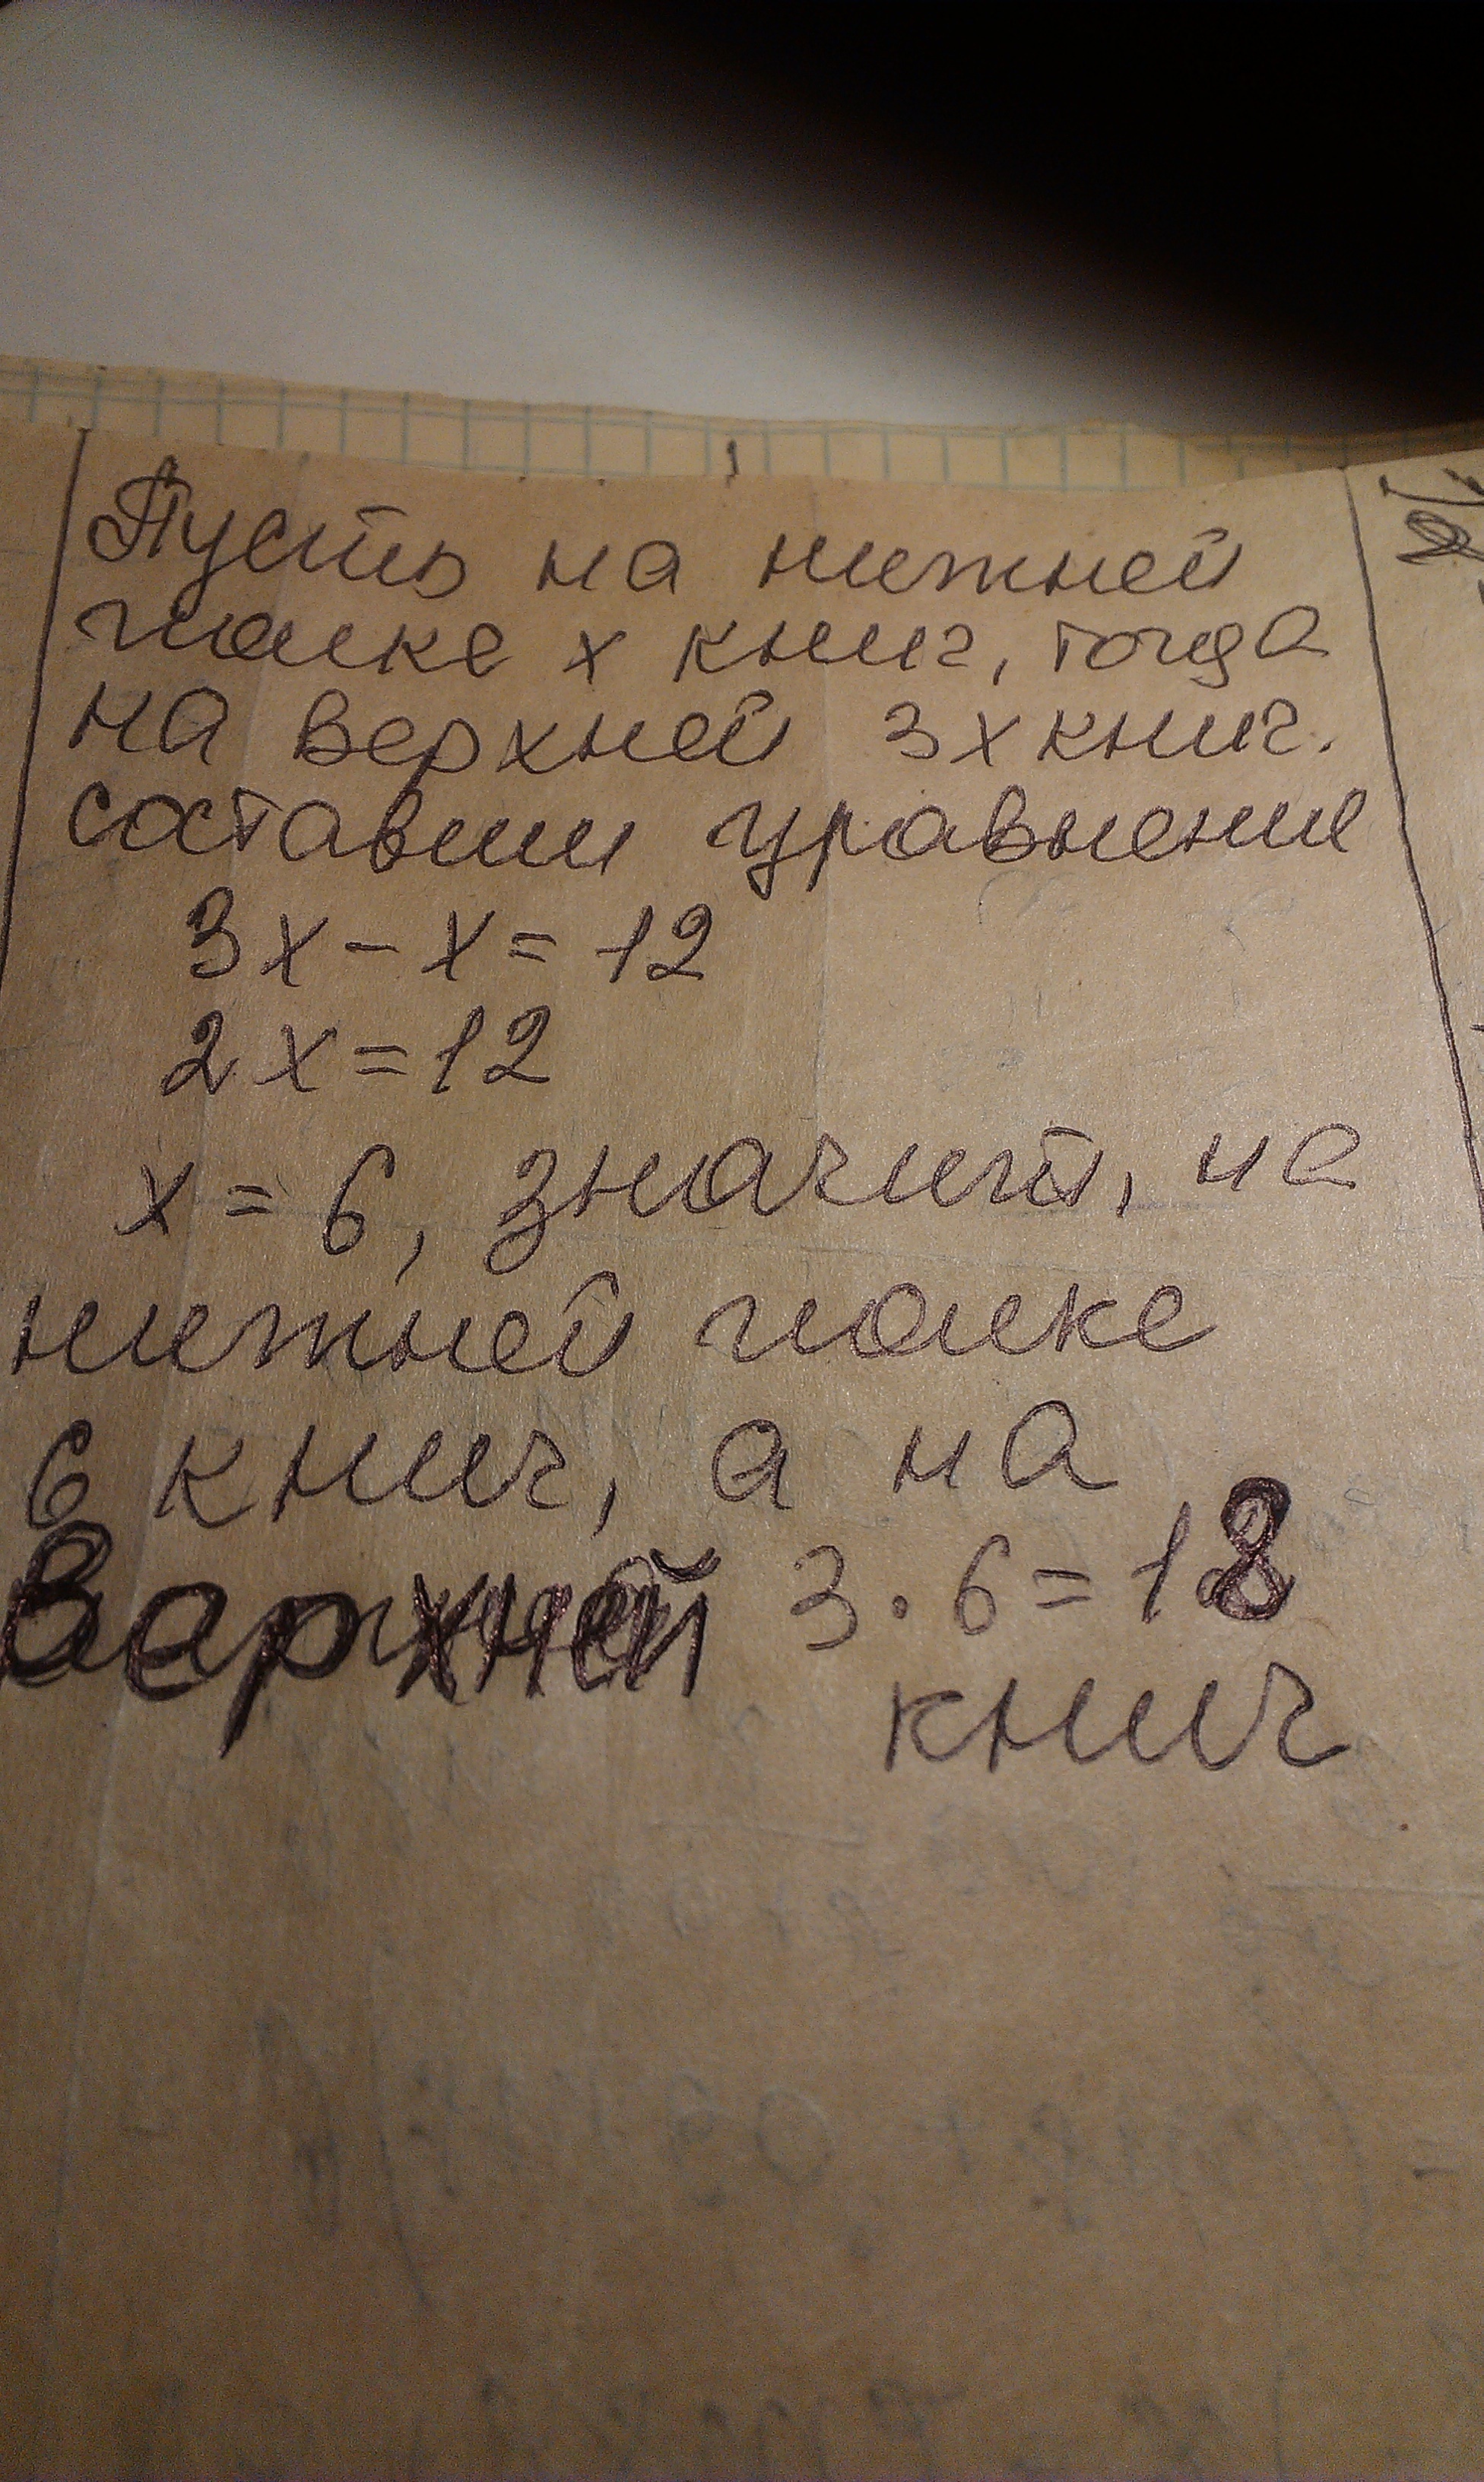 Пусть на нижней
полке х книг, тогда
на верхней 3х книг.
составим уравнение
3х - х = 12
2х = 12
х = 6, значит, на
нижней полке
6 книг, а на
верхней 3 · 6 = 18
книг